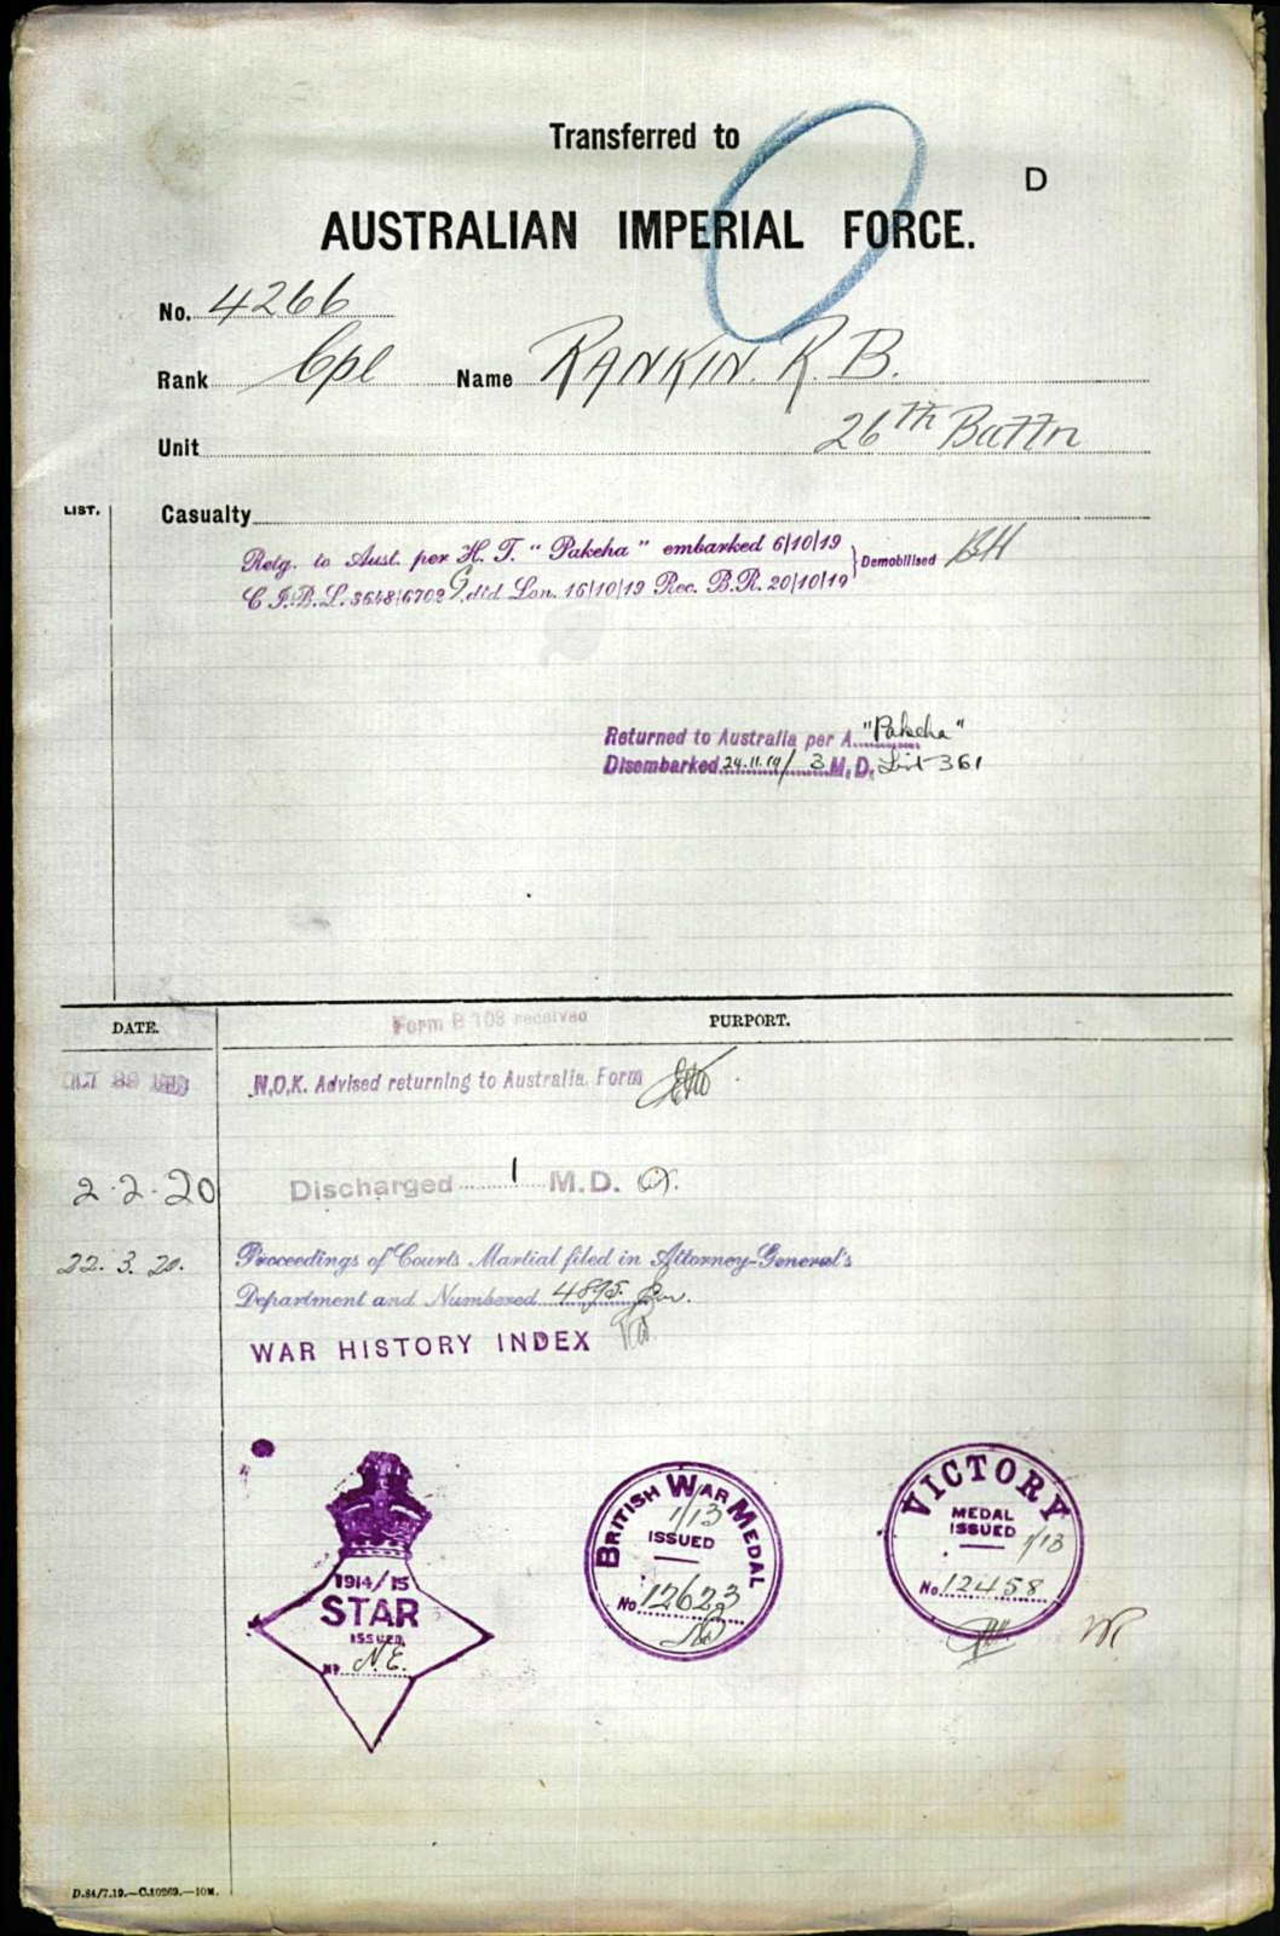 Transferred to
D
AUSTRALIAN IMPERIAL FORCE.
No. 4266
Rank Cpl Name RANKIN. R. B.
Unit 26th Battn
LIST.
Casualty
Retg. to Aust. per H. T. "Pakeha" embarked 6/10/19
C.I.B.L. 3648/6702 did Lon. 16/10/19 Rec. B.R. 20/10/19
Demobilised BH
Returned to Australia per A. "Pakeha"
Disembarked 24.11.19/ 3 M.D. List 361
DATE. PURPORT.
Form B 103 received
OCT
N.O.K. Advised returning to Australia. Form
2.2.20 Discharged 1 M.D.
22.3.20. Proceedings of Courts Martial filed in Attorney-General's
Department and Numbered 4895
WAR HISTORY INDEX
1914/15
STAR
ISSUED
No. N.E.
BRITISH WAR MEDAL
1/13
ISSUED
No 12623
VICTORY
MEDAL
ISSUED
1/13
No 12458
D.84/7.19.—C.10269.—10M.